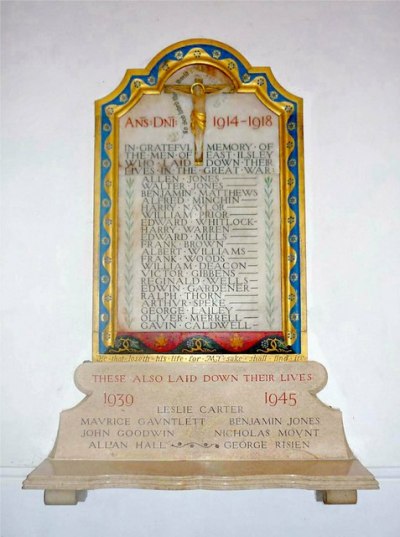 ANS: DNI: 1914-1918
IN GRATEFUL MEMORY OF
THE MEN OF EAST ILSLEY
WHO LAID DOWN THEIR
LIVES IN THE GREAT WAR:
ALLEN JONES
WALTER JONES
BENJAMIN MATTHEWS
ALFRED MINCHIN
HARRY NAYLOR
WILLIAM PRIOR
EDWARD WHITLOCK
HARRY WARREN
EDWARD MILLS
FRANK BROWN
ALBERT WILLIAMS
FRANK WOODS
WILLIAM DEACON
VICTOR GIBBENS
REGINALD WELLS
EDWIN GARDENER
RALPH THORN
ARTHVR SPEKE
GEORGE LAILEY
OLIVER MERRELL
GAVIN CALDWELL
He that loseth his life for My sake shall find it
THESE ALSO LAID DOWN THEIR LIVES
1939 1945
LESLIE CARTER
MAVRICE GAVNTLETT BENJAMIN JONES
JOHN GOODWIN NICHOLAS MOVNT
ALLAN HALL GEORGE RISIEN